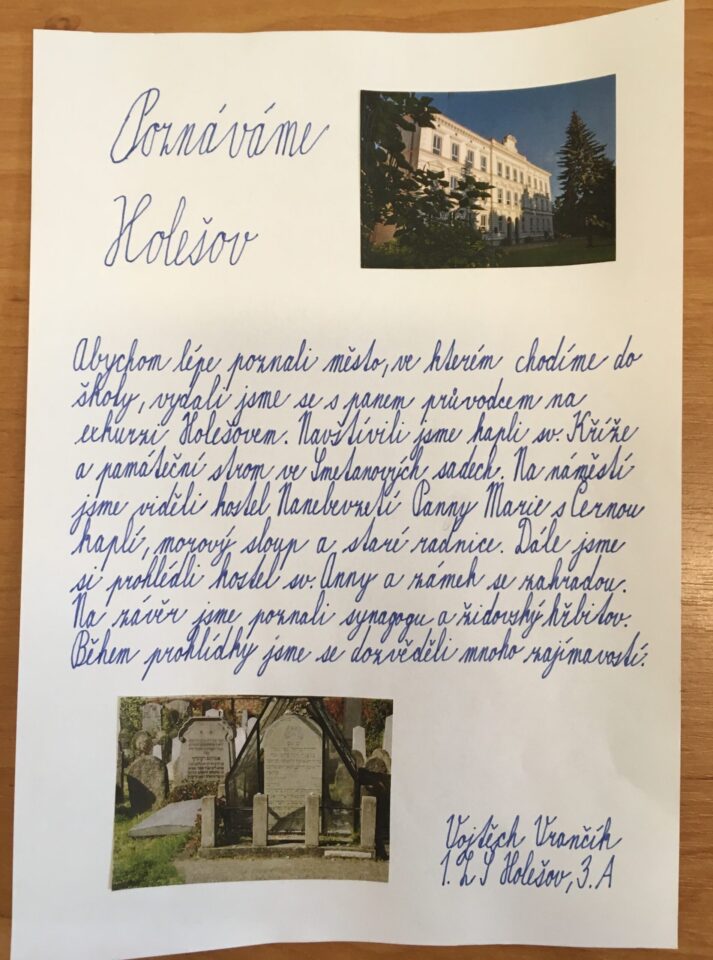 Poznáváme
Holešov
Abychom lépe poznali město, ve kterém chodíme do
školy, vydali jsme se s panem průvodcem na
exkurzi Holešovem. Navštívili jsme kapli sv. Kříže
a památeční strom ve Smetanových sadech. Na náměstí
jsme viděli kostel Nanebevzetí Panny Marie s Černou
kaplí, morový sloup a staré radnice. Dále jsme
si prohlédli kostel sv. Anny a zámek se zahradou.
Na závěr jsme poznali synagogu a židovský hřbitov.
Během prohlídky jsme se dozvěděli mnoho zajímavostí.
Vojtěch Vrančík
1. ZŠ Holešov, 3. A